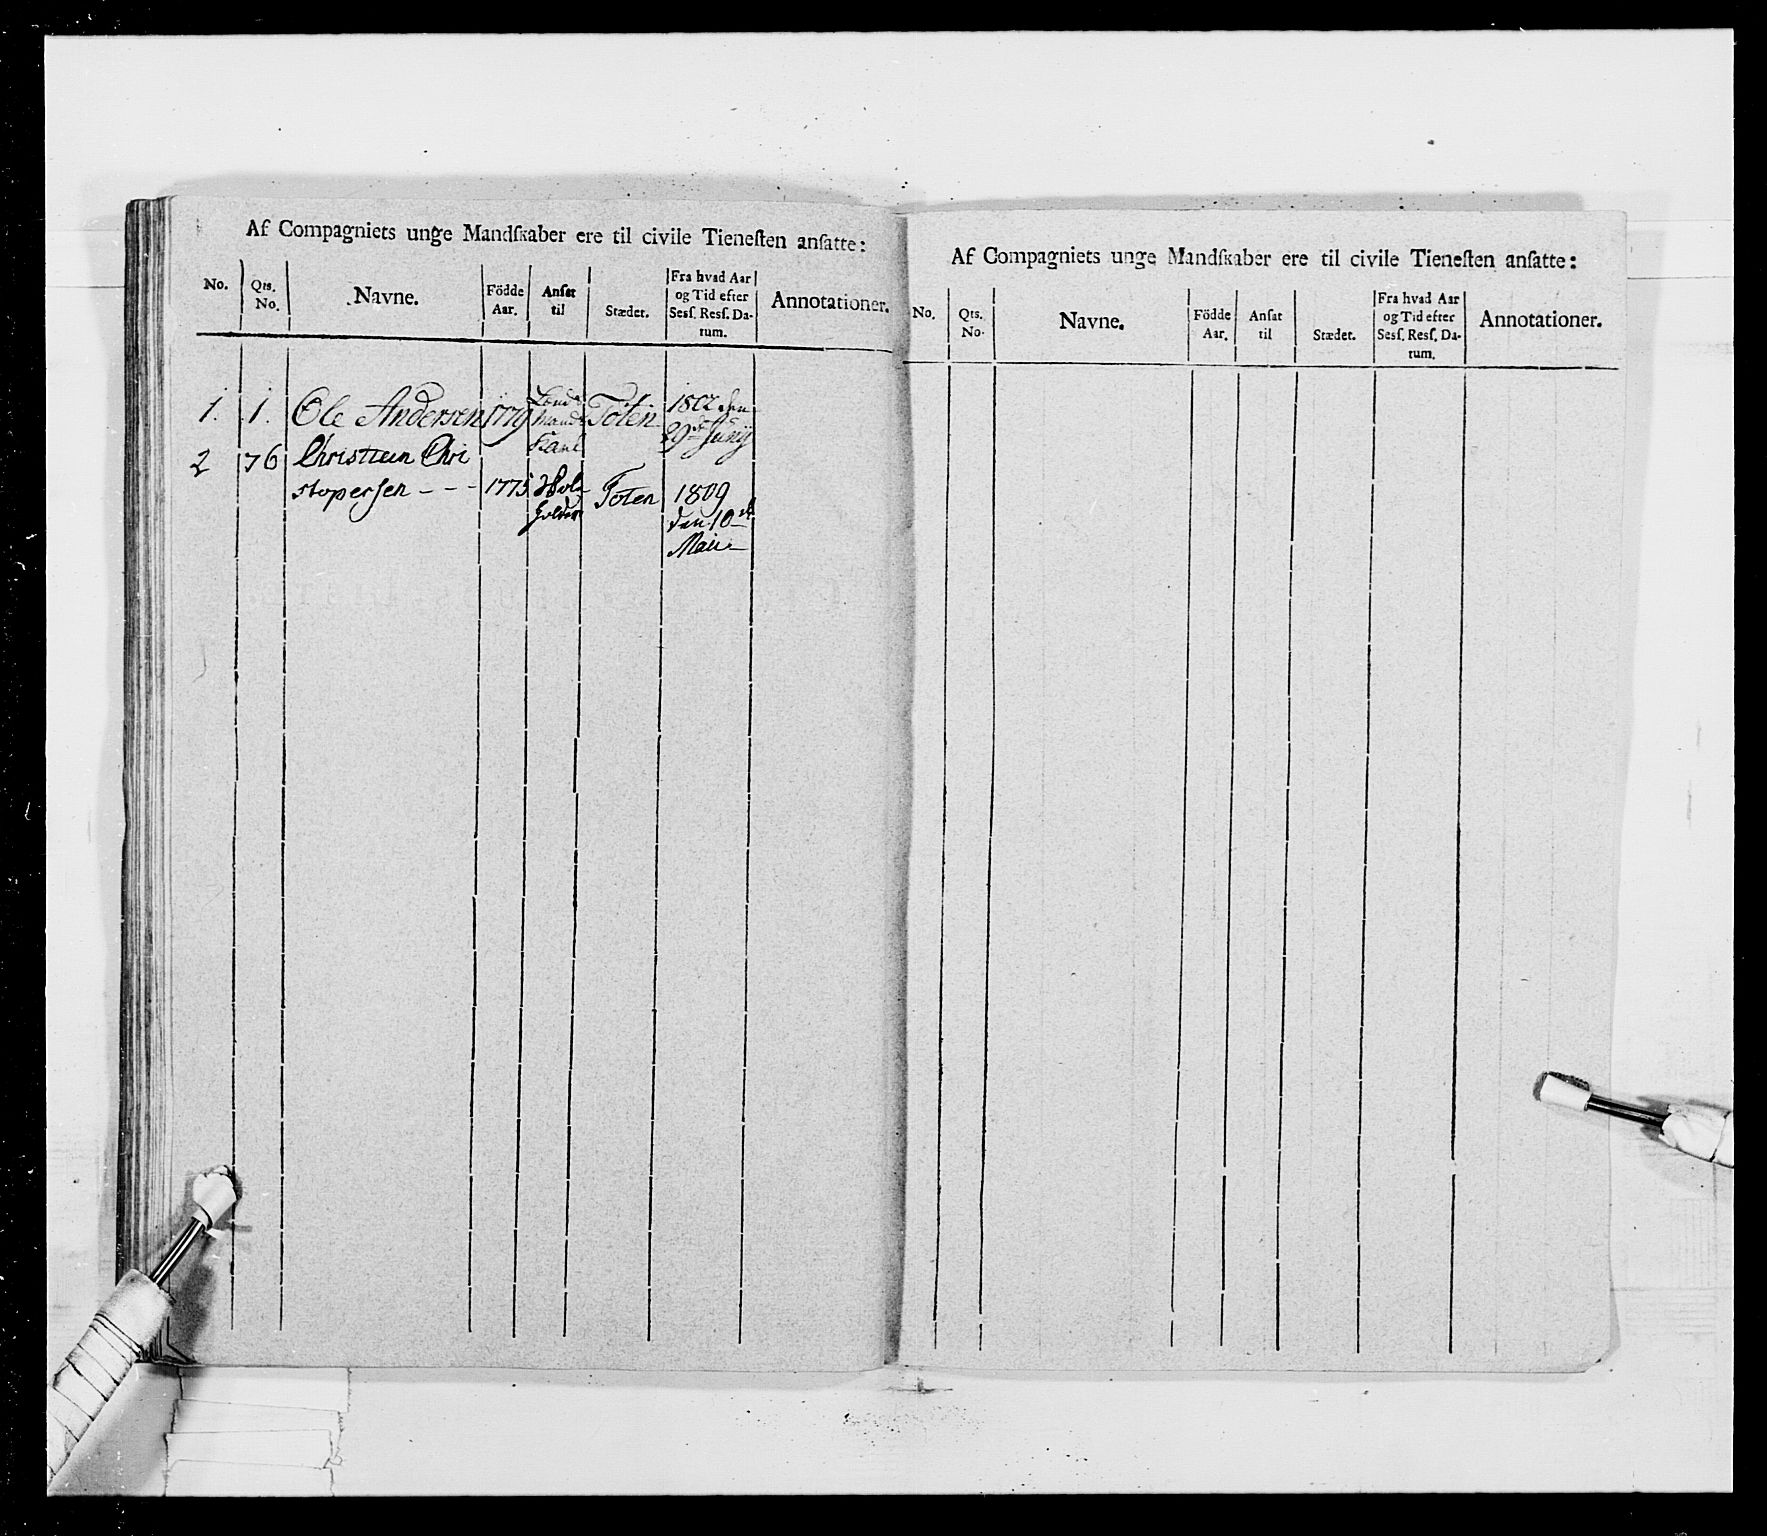 Af Compagniets unge Mandſkaber ere til civile Tieneſten anſatte:
No. Qts. No. Navne. Födde Aar. Anſat til Stædet. Fra hvad Aar og Tid efter Sesſ. Resſ. Datum. Annotationer.
1. 1. Ole Andersen 1779 Lends Toten 1802 den
Mands 29de Junij
Karl
2 76 Christian Chri
stopersen - - - 1775 Toten 1809
den 10de
Maii
Af Compagniets unge Mandſkaber ere til civile Tieneſten anſatte:
No. Qts. No. Navne. Födde Aar. Anſat til Stædet. Fra hvad Aar og Tid efter Sesſ. Resſ. Datum. Annotationer.